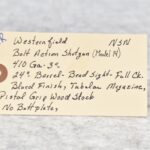 Westernfield NSN
Bolt Action Shotgun (Model 14)
410 Ga - 3"
24" Barrel - Bead Sight - Full Ck.
Blued Finish, Tubular Magazine,
Pistol Grip Wood Stock
No Buttplate,